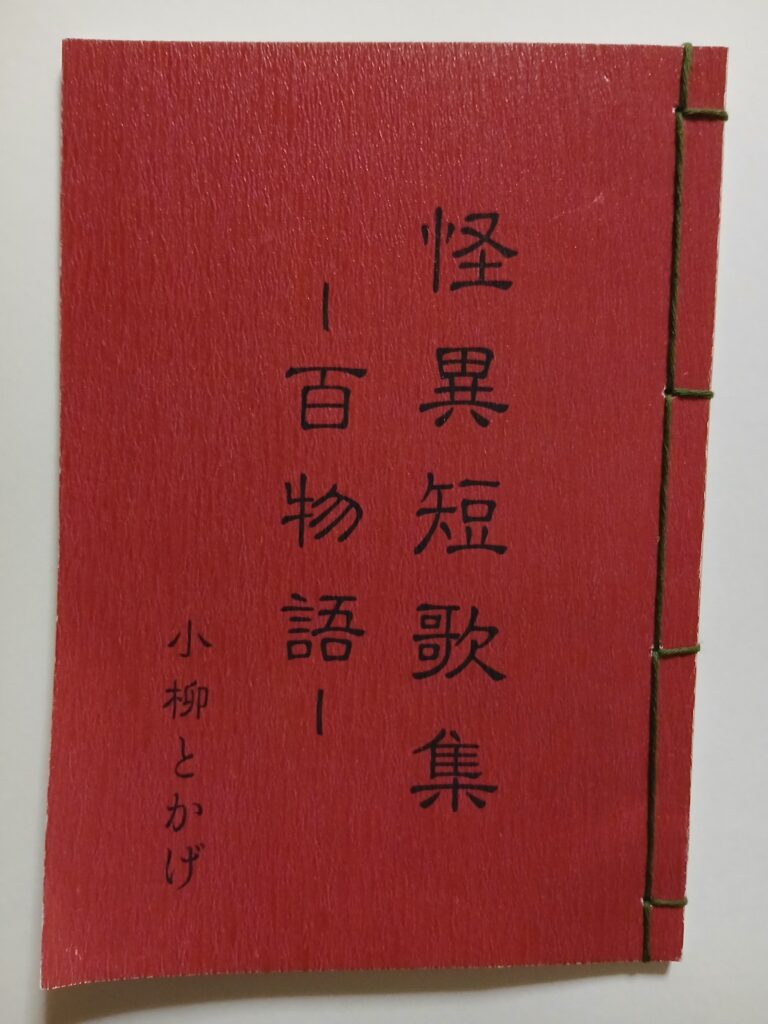 怪異短歌集
ー百物語ー
小柳とかげ